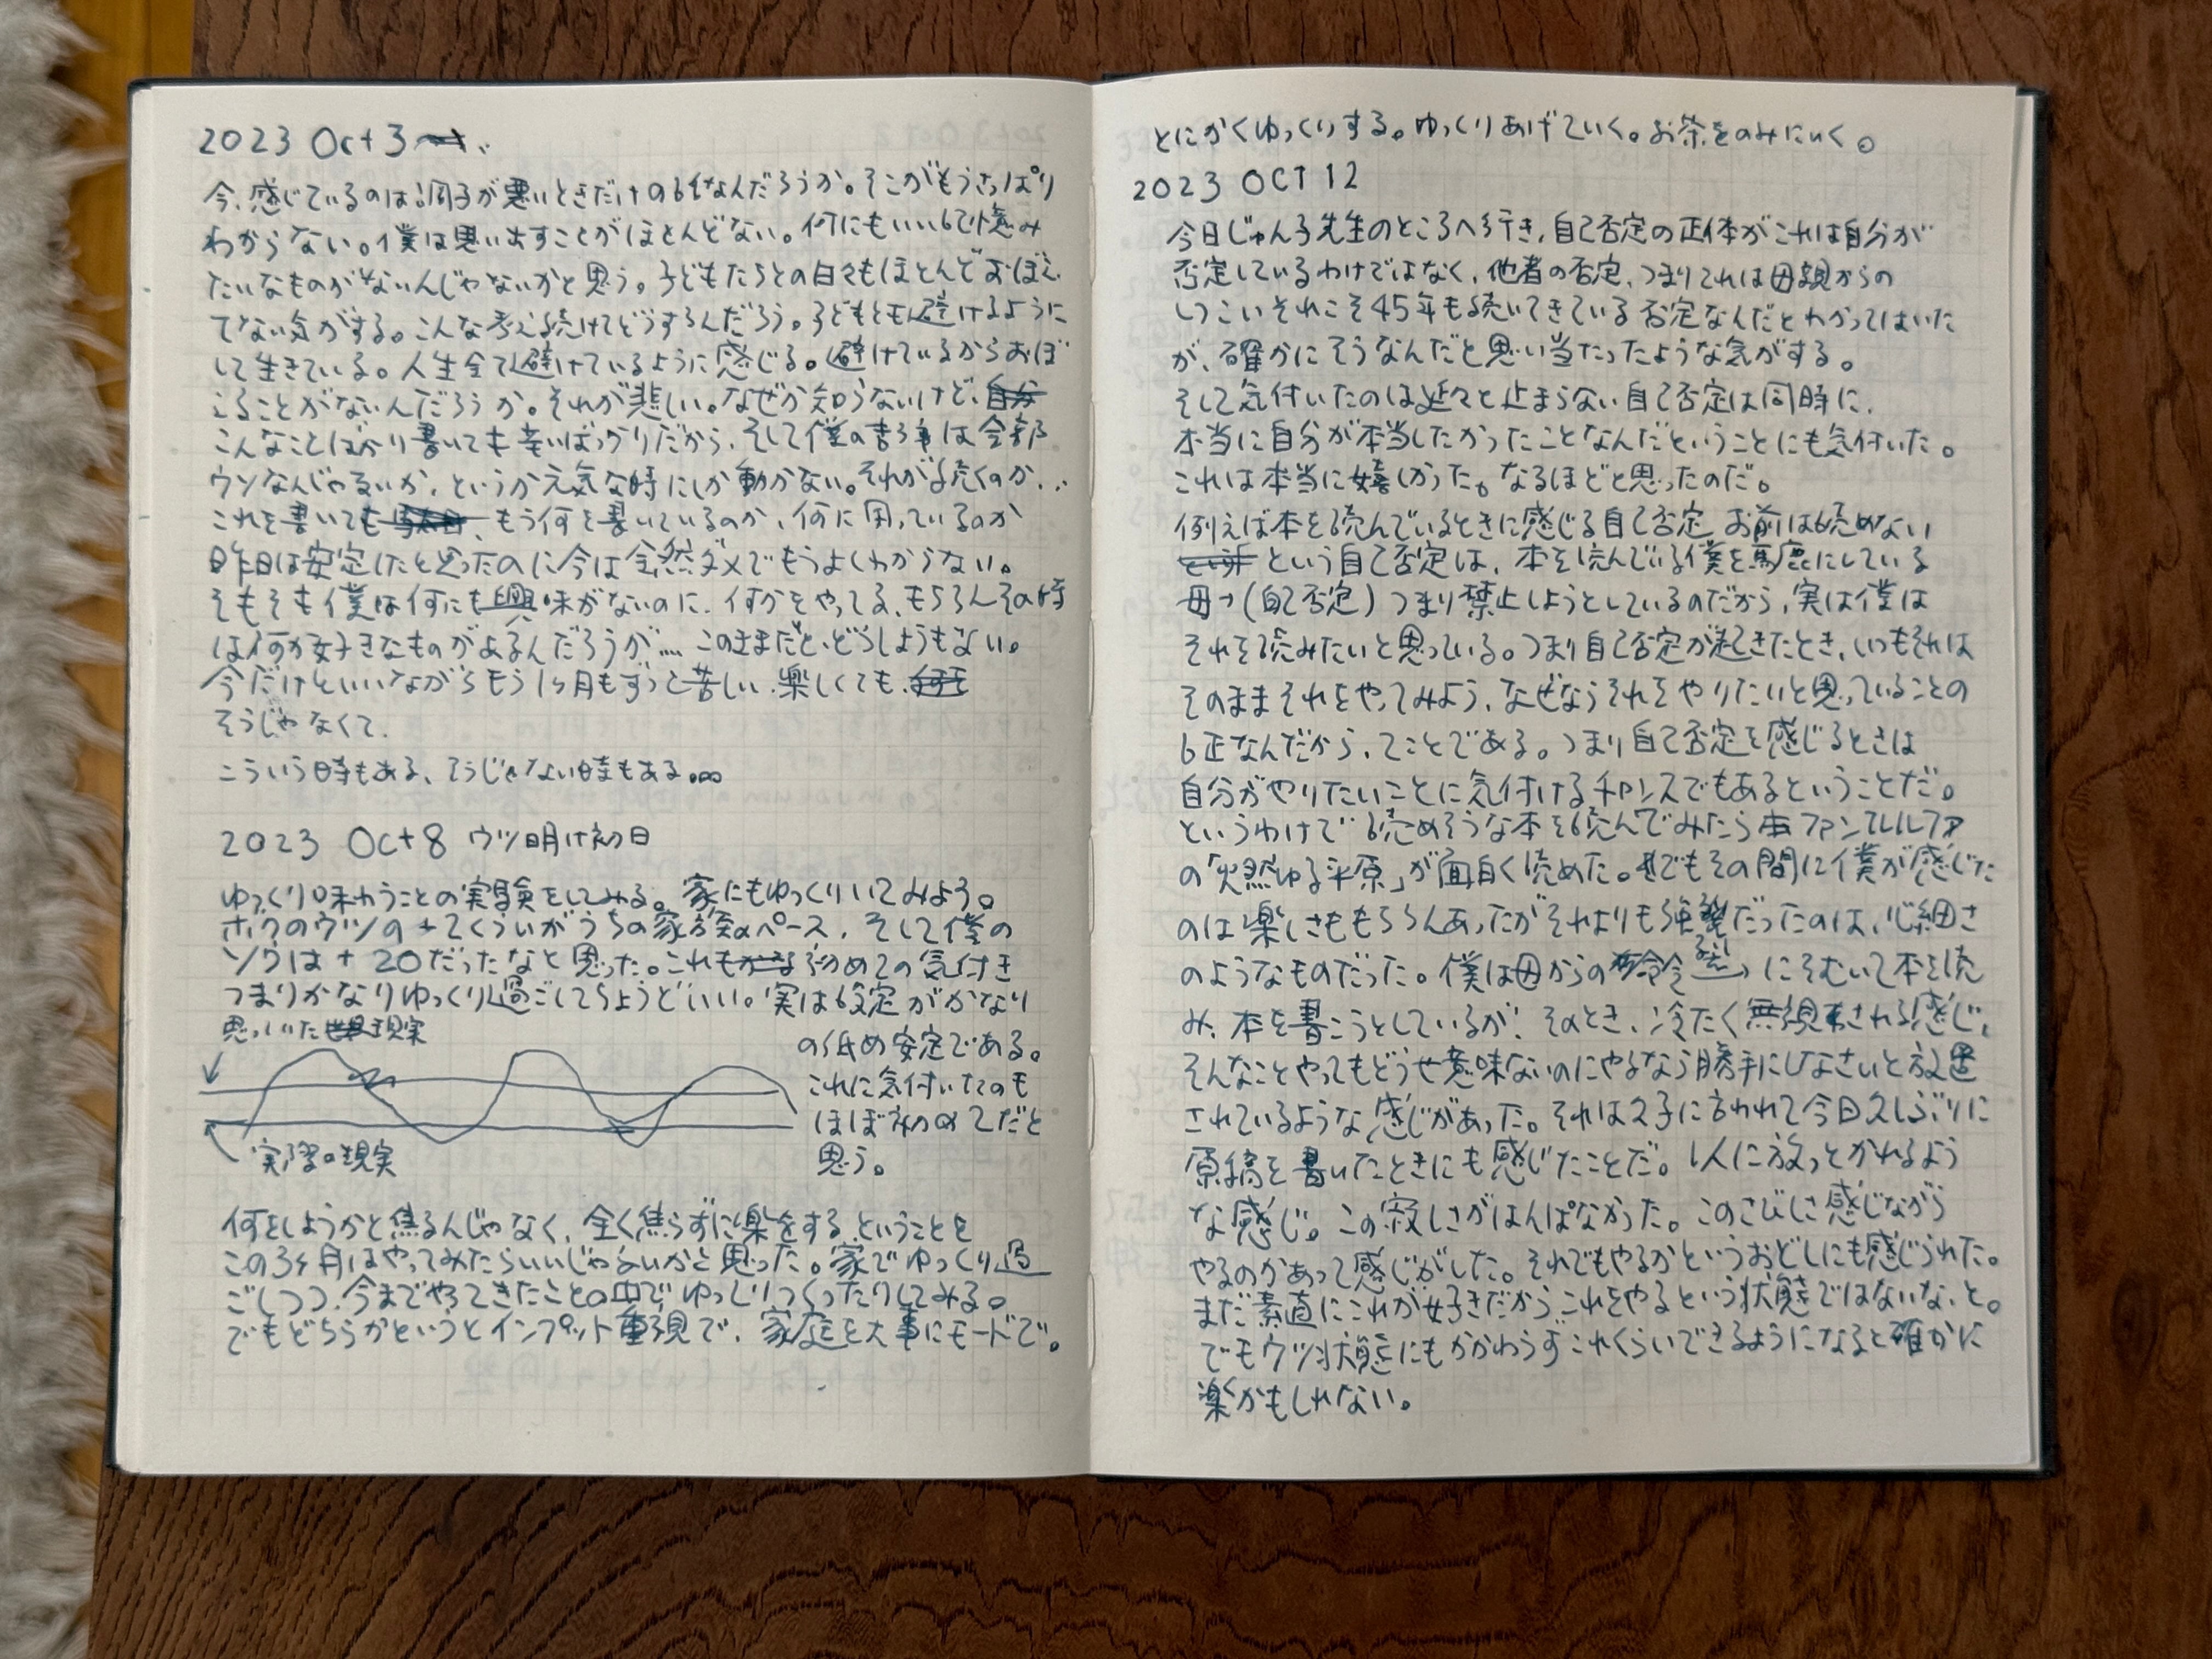 2023 Oct 3
今、感じているのは調子が悪いときだけの話なんだろうか。そこがもうさっぱり
わからない。僕は思い出すことがほとんどない。何にもいい記憶み
たいなものがないんじゃないかと思う。子どもたちとの日々もほとんどおぼえ
てない気がする。こんな考え続けてどうするんだろう。子どもとも避けるように
して生きている。人生全て避けているように感じる。避けているからおぼ
えることがないんだろうか。それが悲しい。なぜか知らないけど、自分
こんなことばかり書いても辛いばっかりだから、そして僕の書く事は全部
ウソなんじゃないか、というか元気な時にしか動かない。それが続くのか...
これを書いても、もう何を書いているのか、何に困っているのか
昨日は安定したと思ったのに今は全然ダメでもうよくわからない。
そもそも僕は何にも興味がないのに、何かをやってる、もちろんその時
は何か好きなものがあるんだろうが.... このままだと、どうしようもない。
今だけといいながらもう1ヶ月もずっと苦しい、楽しくても、
そうじゃなくて、
こういう時もある、そうじゃない時もある。。。
2023 Oct 8 ウツ明け初日
ゆっくり味わうことの実験をしてみる。家にもゆっくりいてみよう。
ボクのウツの+てくらいがうちの家族のペース、そして僕の
ソウは+20だったなと思った。これも初めての気付き
つまりかなりゆっくり過ごしてちょうどいい。実は設定がかなり
思っていた現実
の低め安定である。
これに気付いたのも
ほぼ初めてだと
思う。
実際の現実
何をしようかと焦るんじゃなく、全く焦らずに楽をする、ということを
この3ヶ月はやってみたらいいじゃないかと思った。家でゆっくり過
ごしつつ、今までやってきたことの中でゆっくりつくったりしてみる。
でもどちらかというとインプット重視で、家庭を大事にモードで。
とにかくゆっくりする。ゆっくりあげていく。お茶をのみにいく。
2023 OCT 12
今日じゅん子先生のところへ行き、自己否定の正体がこれは自分が
否定しているわけではなく、他者の否定、つまりこれは母親からの
しつこいそれこそ45年も続いてきている否定なんだとわかってはいた
が、確かにそうなんだと思い当たったような気がする。
そして気付いたのは延々と止まらない自己否定は同時に、
本当に自分が本当したかったことなんだということにも気付いた。
これは本当に嬉しかった。なるほどと思ったのだ。
例えば本を読んでいるときに感じる自己否定 お前は読めない
という自己否定は、本を読んでいる僕を馬鹿にしている
母→(自己否定)つまり禁止しようとしているのだから、実は僕は
それを読みたいと思っている。つまり自己否定が起きたとき、いつもそれは
そのままそれをやってみよう、なぜならそれをやりたいと思っていることの
証なんだから、てことである。つまり自己否定を感じるときは
自分がやりたいことに気付けるチャンスでもあるということだ。
というわけで読めそうな本を読んでみたら本ファンルルファ
の「燃ゆる平原」が面白く読めた。でもその間に僕が感じた
のは楽しさももちろんあったがそれよりも強烈だったのは、心細さ
のようなものだった。僕は母からの命令にそむいて本を読
み、本を書こうとしているが、そのとき、冷たく無視される感じ、
そんなことやってもどうせ意味ないのにやるなら勝手にしなさいと放置
されているような感じがあった。それは久子に言われて今日久しぶりに
原稿を書いたときにも感じたことだ。1人に放っとかれるよう
な感じ。この寂しさがはんぱなかった。このさびしさ感じながら
やるのかあって感じがした。それでもやるかというおどしにも感じられた。
まだ素直にこれが好きだからこれをやるという状態ではないな、と。
でもウツ状態にもかかわらずこれくらいできるようになると確かに
楽かもしれない。